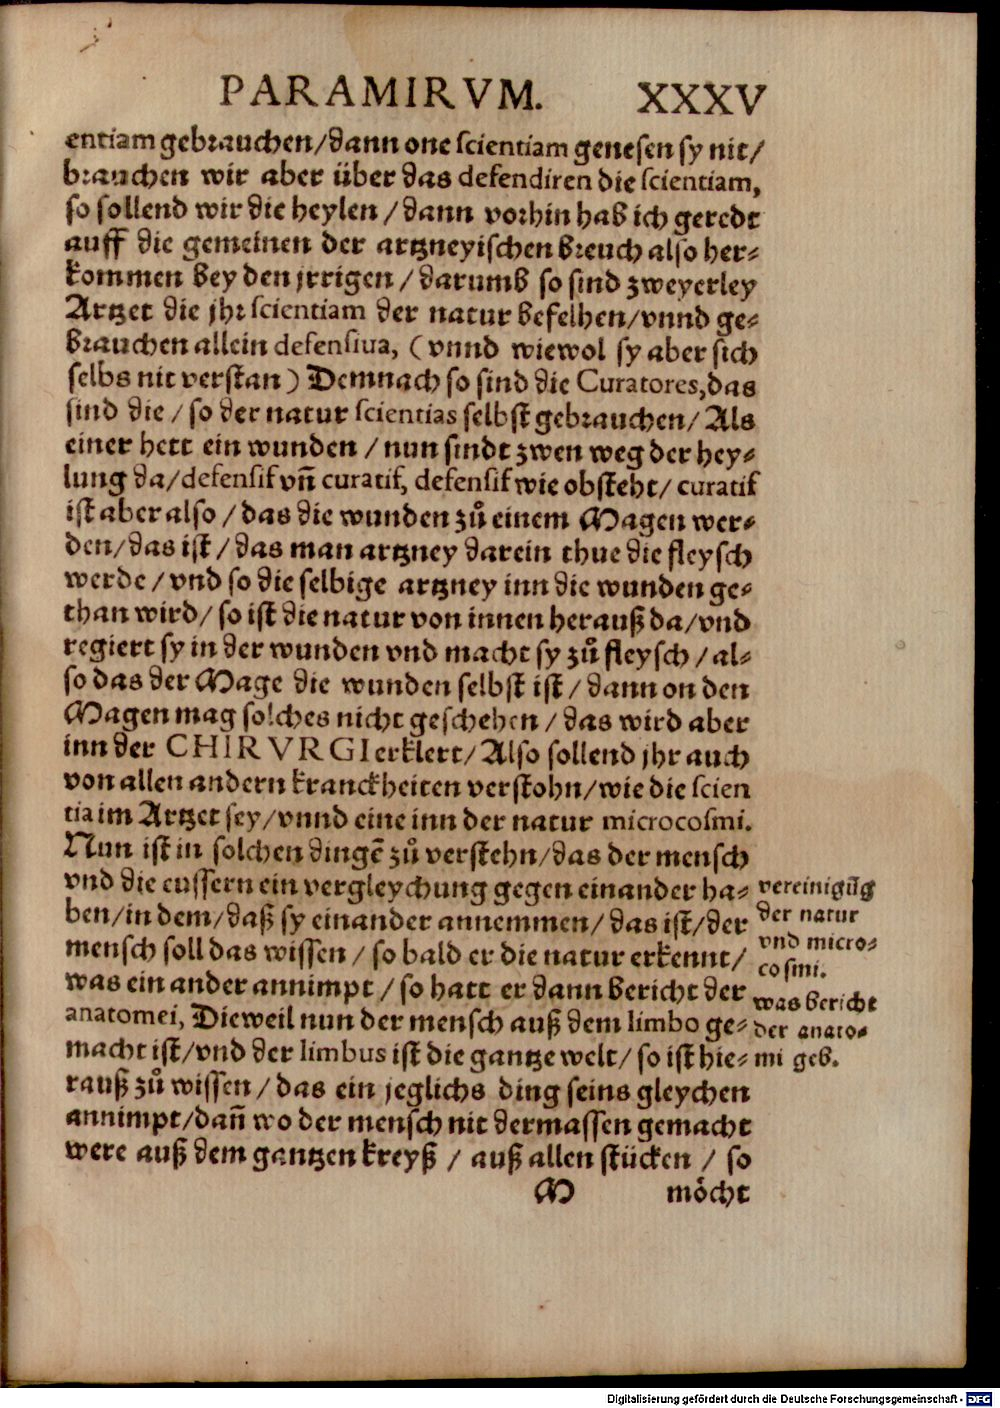 PARAMIRVM. XXXV
entiam gebrauchen/dann one scientiam genesen sy nit/
brauchen wir aber über das defendiren die scientiam,
so sollend wir die heylen/dann vorhin hab ich geredt
auff die gemeinen der artzneyischen breuch also her⸗
kommen bey den jrrigen/darumb so sind zweyerley
Artzet die jhr scientiam der natur befelhen/vnnd ge⸗
brauchen allein defensiua, (vnnd wiewol sy aber sich
selbs nit verstan) Demnach so sind die Curatores, das
sind die/so der natur scientias selbst gebrauchen/Als
einer hett ein wunden/nun sindt zwen weg der hey⸗
lung da/defensif vñ curatif, defensif wie obsteht/curatif
ist aber also/das die wunden zů einem Magen wer⸗
den/das ist/das man artzney darein thue die fleysch
werde/vnd so die selbige artzney inn die wunden ge⸗
than wird/so ist die natur von innen herauß da/vnd
regiert sy in der wunden vnd macht sy zů fleysch/al⸗
so das der Mage die wunden selbst ist/dann on den
Magen mag solches nicht geschehen/das wird aber
inn der CHIRVRGI erklert/Also sollend jhr auch
von allen andern kranckheiten verstohn/wie die scien
tia im Artzet sey/vnnd eine inn der natur microcosmi.
Nun ist in solchen dingẽ zů verstehn/das der mensch
vnd die eussern ein vergleychung gegen einander ha⸗
ben/in dem/daß sy einander annemmen/das ist/der
mensch soll das wissen/so bald er die natur erkennt/
was ein ander annimpt/so hatt er dann bericht der
anatomei, Dieweil nun der mensch auß dem limbo ge⸗
macht ist/vnd der limbus ist die gantze welt/so ist hie⸗
rauß zů wissen/das ein jeglichs ding seins gleychen
annimpt/dañ wo der mensch nit dermassen gemacht
were auß dem gantzen kreyß/auß allen stücken/so
M möcht
vereinigũg
der natur
vnd micro⸗
cosmi.
was bericht
der anato⸗
mi geb.
Digitalisierung gefördert durch die Deutsche Forschungsgemeinschaft - DFG